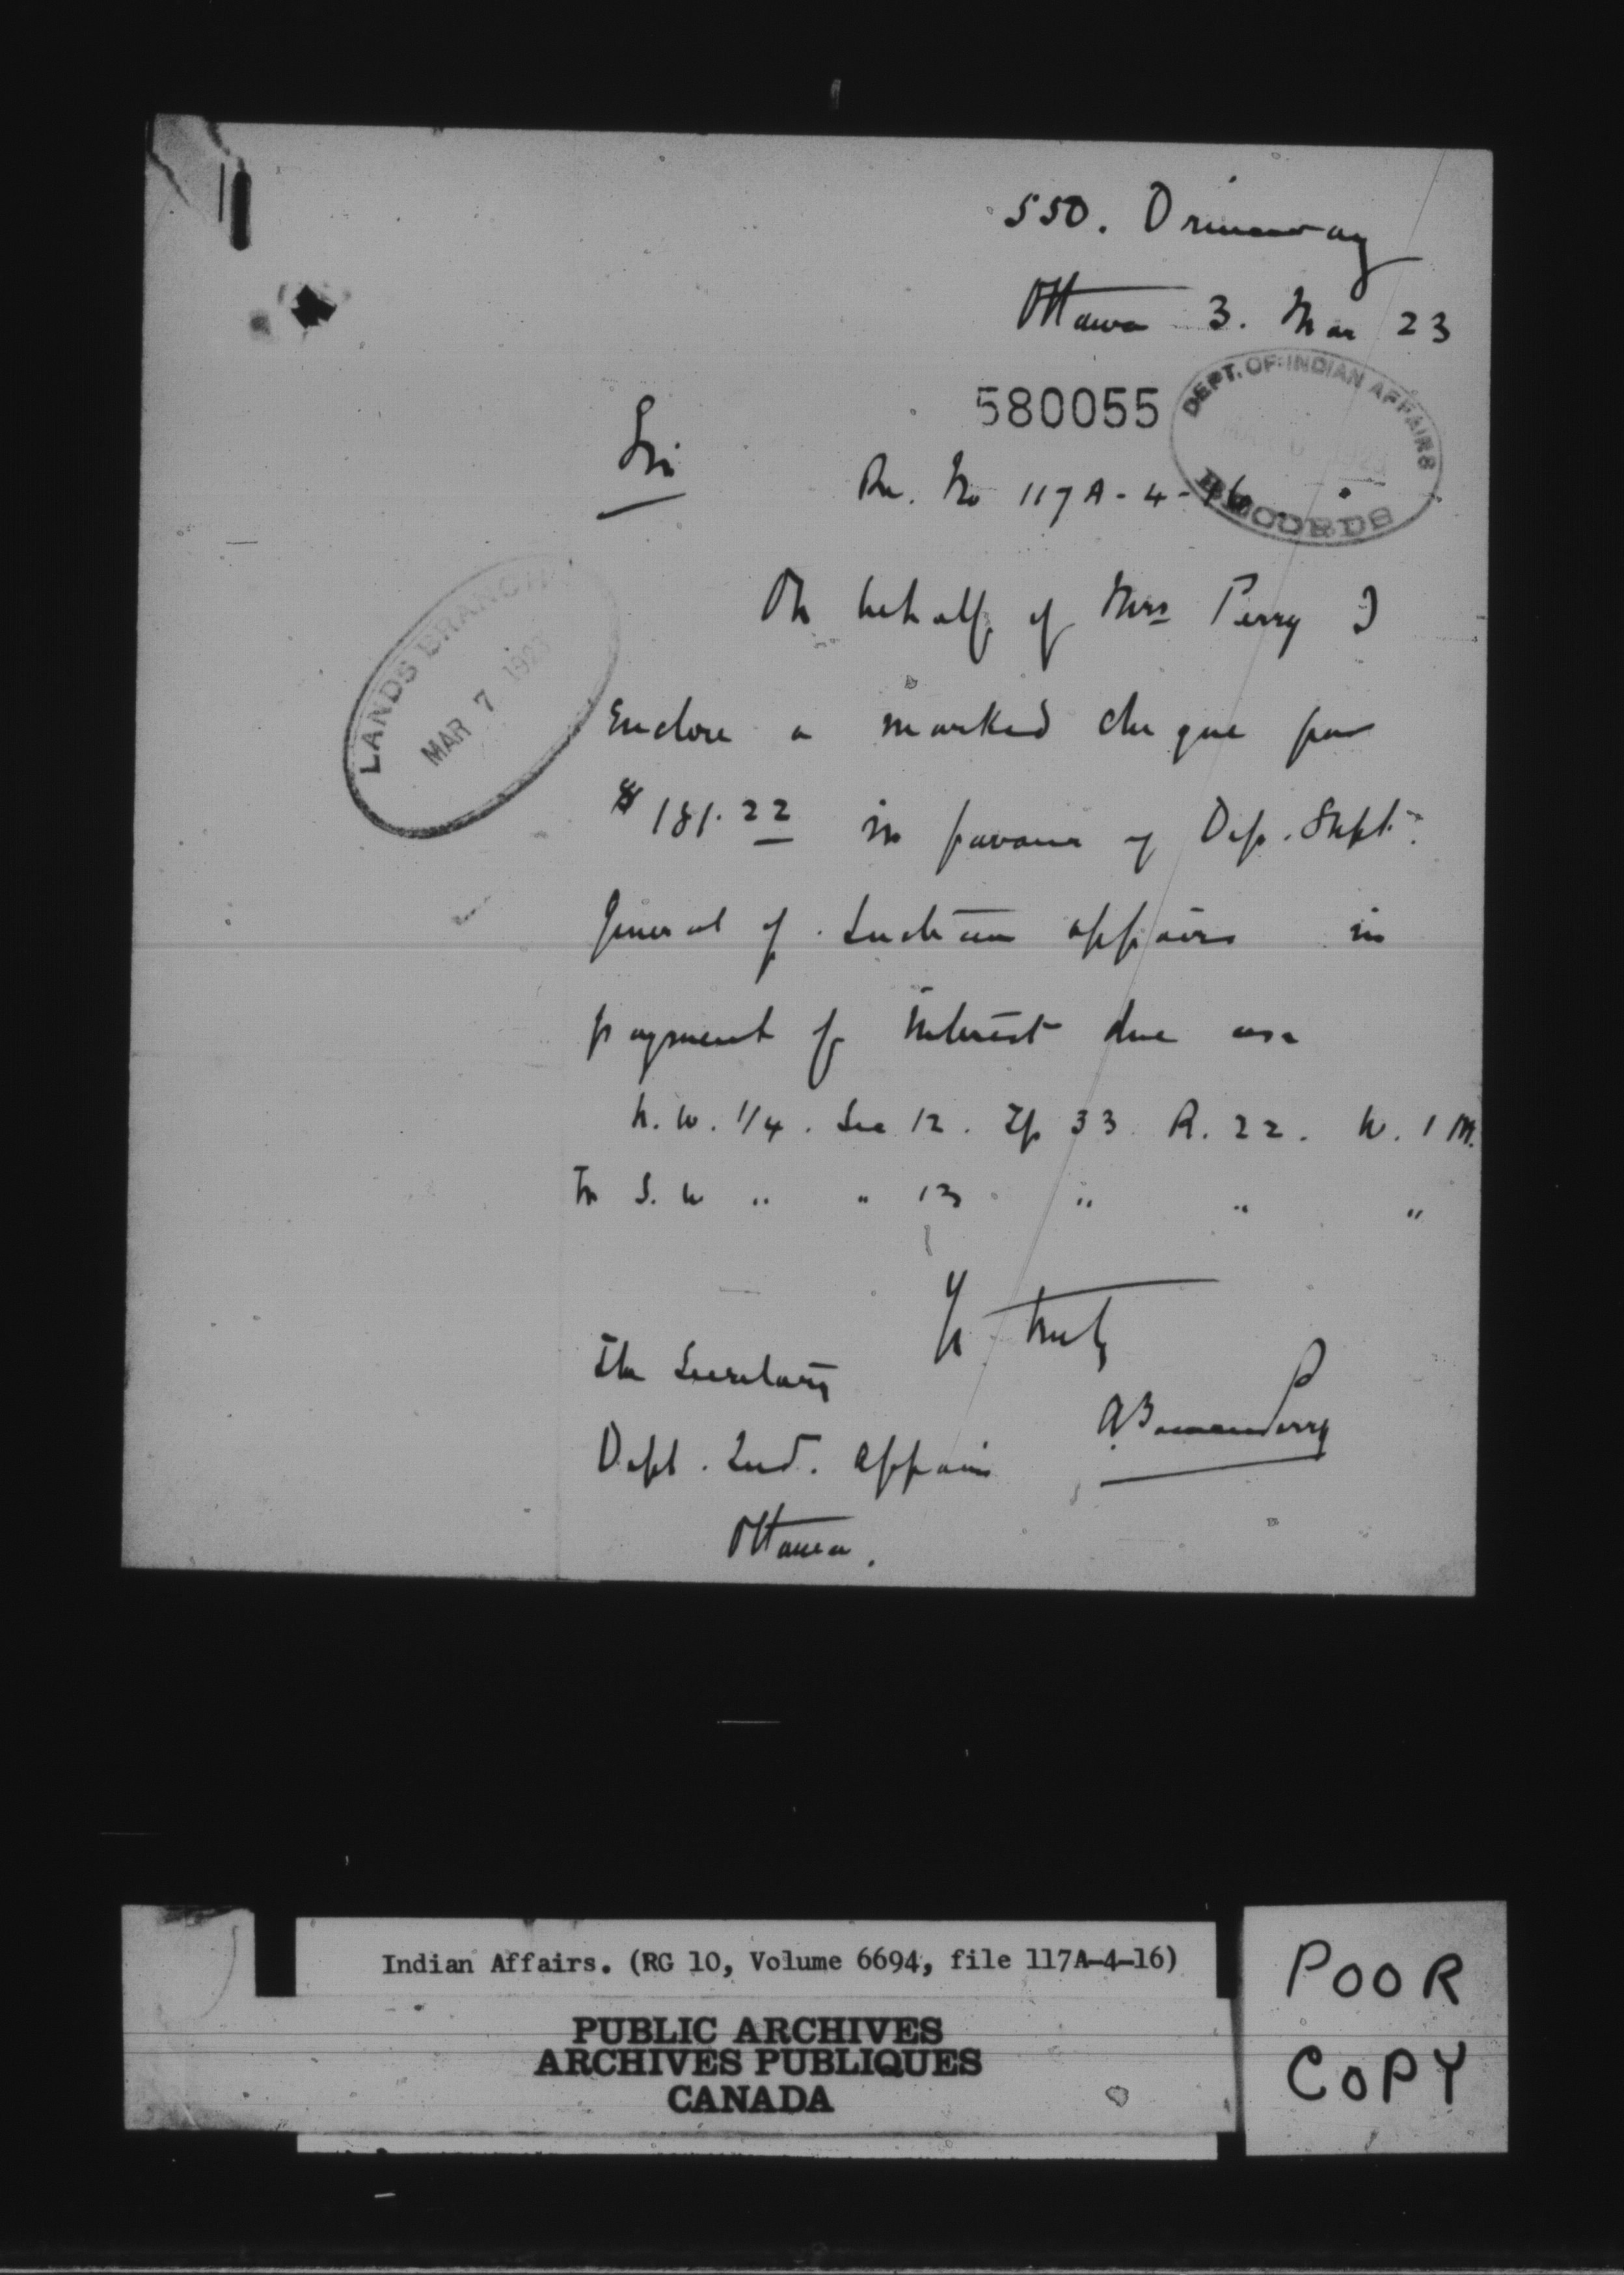 550. Driveway
Ottawa 3. Mar 23
580055
DEPT. OF INDIAN AFFAIRS
1923
RECORDS
Sir
Re. No 117A-4-16.
LANDS BRANCH
MAR 7 1923
On behalf of Mrs Perry I
Enclose a marked cheque for
$181.22 in favour of Dep. Supt.
General of Indian affairs in
payment of interest due on
N.W. 1/4. Sec 12. Tp 33 R. 22. W. 1 M.
S. W " " 13 " " "
Yrs truly
The Secretary
A Bowen Perry
Dept. Ind. Affairs
Ottawa.
Indian Affairs. (RG 10, Volume 6694, file 117A-4-16)
PUBLIC ARCHIVES
ARCHIVES PUBLIQUES
CANADA
POOR
COPY